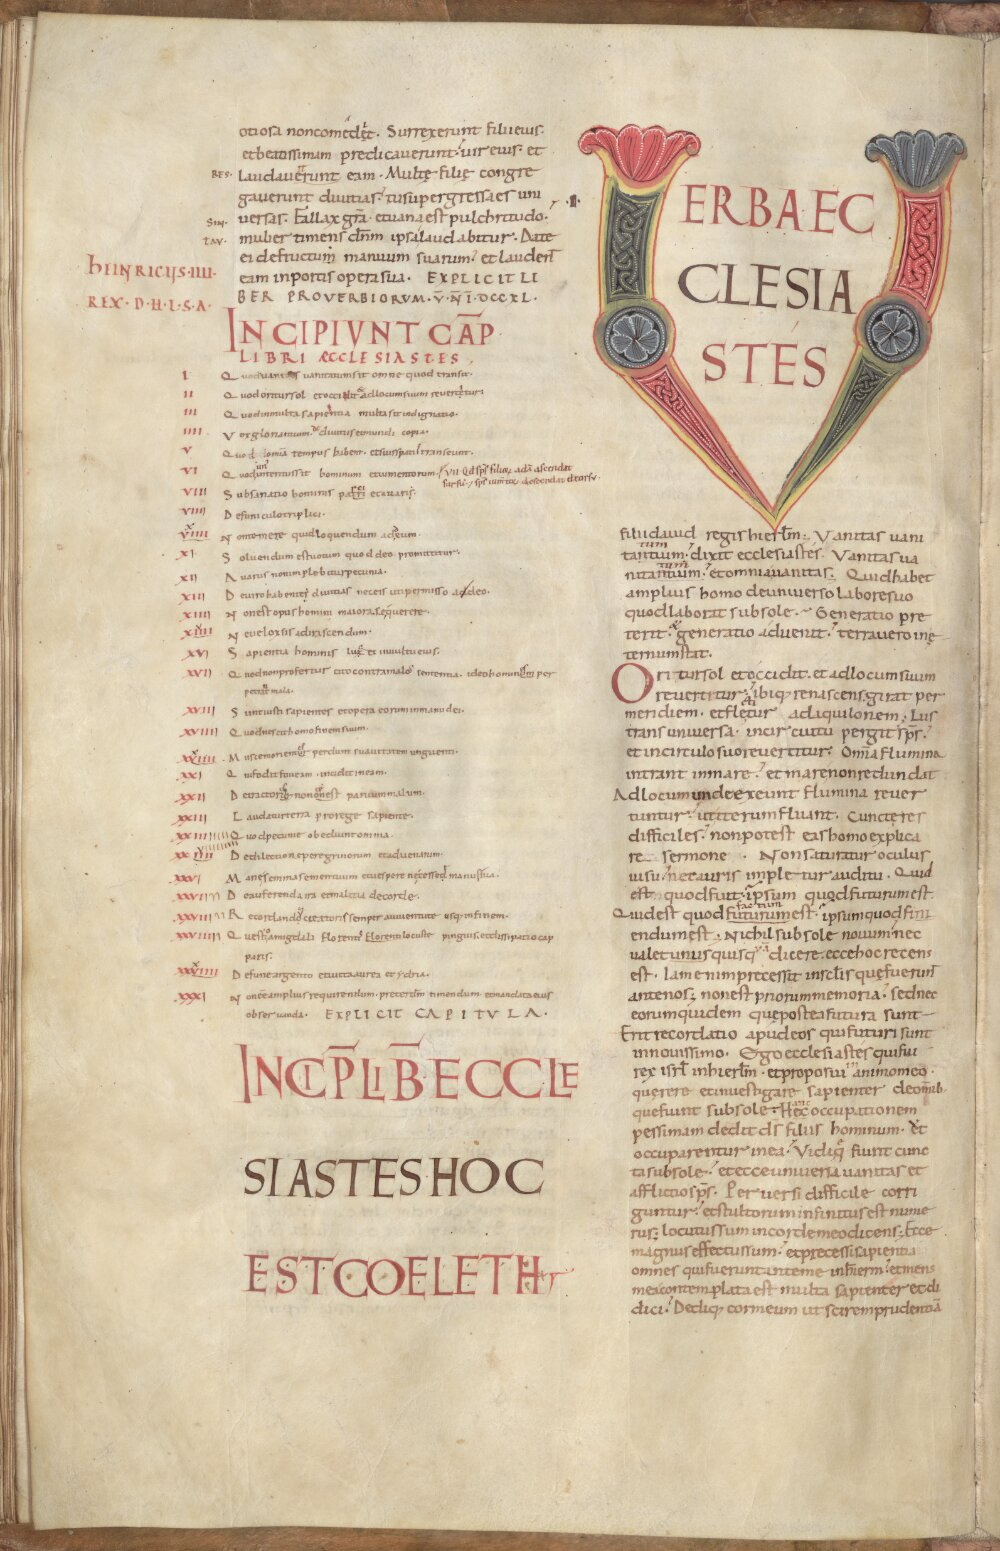 otiosa non comedet. Surrexerunt filii eius.
et beatissimam predicauerunt. uir eius. et
RES. laudauerunt eam. Multę filię congre
gauerunt diuitias. tu supergressa es uni
SIN. uersas. Fallax gra. et uana est pulchritudo.
TAV. mulier timens dnm ipsa laudabitur. Date
ei de fructum manuum suarum. et laudent
HEINRICUS IIII.
REX. D. H. L. S. A.
eam in portis opera sua. EXPLICIT LI
BER PROVERBIORVM. V. NI. DCCXL.
INCIPIVNT CAP
LIBRI ÆCCLESIASTES.
I Quod uanitas uanitatum sit omne quod transit.
II Quod oritur sol et occidit ad locum suum reuertetur.
III Quod in multa sapientia multa sit indignatio.
IIII Vox gloriantium de diuitiis et mundi copia.
V Quod omnia tempus habent. et suis spatiis transeunt.
VI Quod unus interitus sit hominum et iumentorum. VII Qd sps filior adā ascendat
sursū. sps iumtor descendat deorsū.
VIII Subsanatio hominis pa et auaris.
VIIII De funiculo triplici.
X Ne temere quid loquendum ad deum.
XI Soluendum est uotum quod deo promittitur.
XII Auarus non implebitur pecunia.
XIII De uiro habente diuitias nec eis uti permisso a deo.
XIIII Non est opus homini maiora se querere.
XIIII Ne uelox sis ad irascendum.
XVI Sapientia hominis lucet et in uultu eius.
XVII Quod non profertur cito contra malos sententia. ideo hominum per
petratur mala.
XVIII Sunt iusti sapientes et opera eorum in manu dei.
XVIIII Quod nescit homo finem suum.
XX Muscę morientes perdunt suauitatem unguenti.
XXI Qui fodit foueam. incidit in eam.
XXII Detractor non est paruum malum.
XXIII Laudatur terra pro rege sapiente.
XXIIII Quod pecunię obediunt omnia.
XXV De dilectione peregrinorum et aduenarum.
XXVI Mane semina sementiuum et uespere ne cesset manus tua.
XXVII De auferenda ira et malitia de corde.
XXVIII Recordandus creatoris semper in iuuentute usq; in finem.
XXVIIII Quest amigdali florent florenti locuste pinguis. et dissipatio cap
paris.
XXX De fune argenteo et uitta aurea et ydria.
XXXI Non est amplius requirendum. preter dm timendum et mandata eius
obseruanda. EXPLICIT CAPITVLA.
INCIP LIB ECCLE
SIASTES HOC
EST COELETH
.I.
VERBA EC
CLESIA
STES
filii dauid regis hierlm. Vanitas uani
tantium. dixit ecclesiastes. Vanitas ua
nitantium. et omnia uanitas. Quid habet
amplius homo de uniuerso labore suo
quod laborat sub sole. Generatio pre
terit. et generatio aduenit. terra uero in ę
ternum stat.
Oritur sol et occidit. et ad locum suum
reuertitur. ibiq; renascens. girat per
meridiem. et flectitur ad aquilonem. Lus
trans uniuersa. in circuitu pergit sps.
et in circulo suo reuertitur. Omnia flumina
intrant in mare. et mare non redundat
Ad locum unde exeunt flumina reuer
tuntur. ut iterum fluant. Cunctę res
difficiles. non potest eas homo explica
re sermone. Non saturatur oculus
uisu. nec auris impletur auditu. Quid
est quod fuit. ipsum quod futurum est.
Quid est quod futurum est. ipsum quod faci
endum est. Nichil sub sole nouum nec
ualet unus quisq; dicere. ecce hoc recens
est. Iam enim precessit in sclis que fuerunt
ante nos; non est priorum memoria. sed nec
eorum quidem que postea futura sunt
Erit recordatio apud eos qui futuri sunt
in nouissimo. Ego ecclesiastes qui fui
rex isrl in hierlm. et proposui in animo meo.
querere et inuestigare sapienter de omnib
que fiunt sub sole. Hanc occupationem
pessimam dedit ds filiis hominum. ut
occuparentur in ea. Vidi que fiunt cunc
ta sub sole. et ecce uniuersa uanitas et
afflictio sps. Peruersi difficile corri
guntur. et stultorum infinitus est nume
rus; locutus sum in corde meo dicens. Ecce
magnus effectus sum. et precessi sapientia
omnes qui fuerunt ante me in hierm. et mens
mea contemplata est multa sapienter et di
dici. Dediq; cor meum ut scirem prudentiā